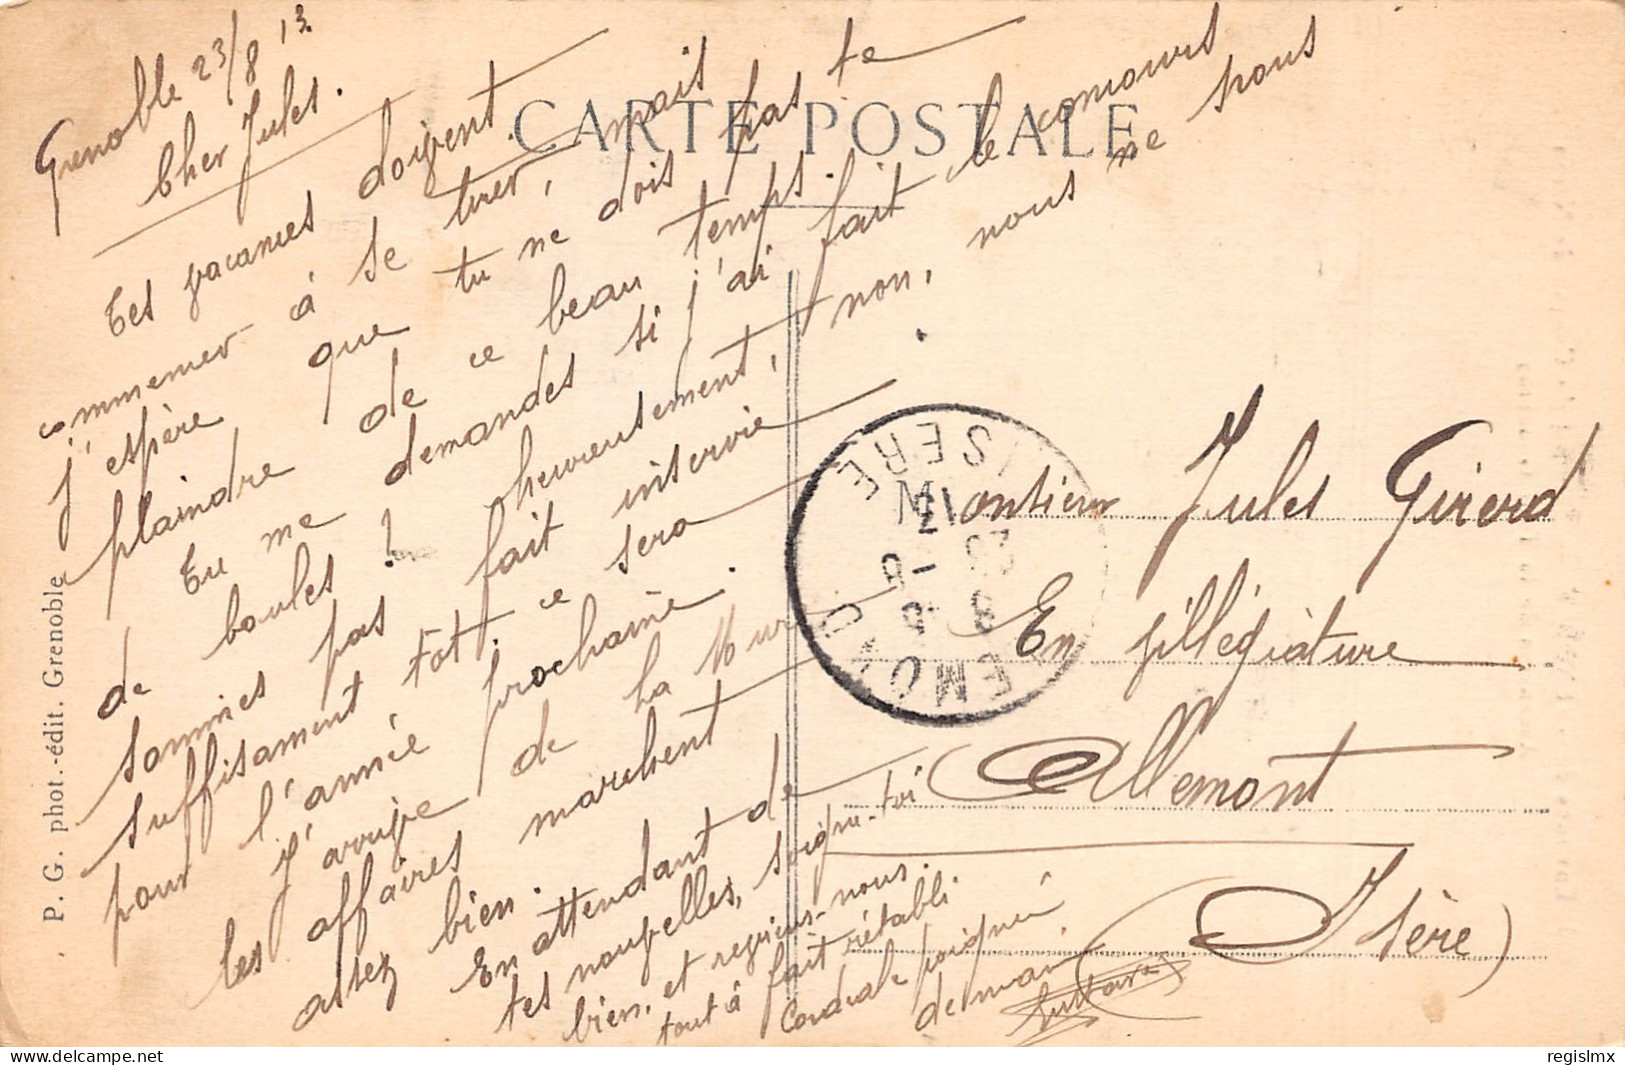 CARTE POSTALE
Grenoble 23/8 13
Cher Jules.
Tes vacances doivent
commencer à se tirer, mais
j'espère que tu ne dois pas te
plaindre de ce beau temps.
Tu me demandes si j'ai fait le concours
de boules ! heureusement, non, nous ne nous
sommes pas fait inscrire
suffisament tot. ce sera
pour l'année prochaine.
J'arrive de La Mure
les affaires marchent
assez bien.
En attendant de
tes nouvelles, soigne-toi
bien, et reviens-nous
tout à fait rétabli.
Cordiale poignée
de main
Gustave
Monsieur Jules Girerd
En villégiature
Allemont
(Isère)
ALLEMOND
ISERE
P. G. phot.-édit. Grenoble
delcampe.net
regislmx